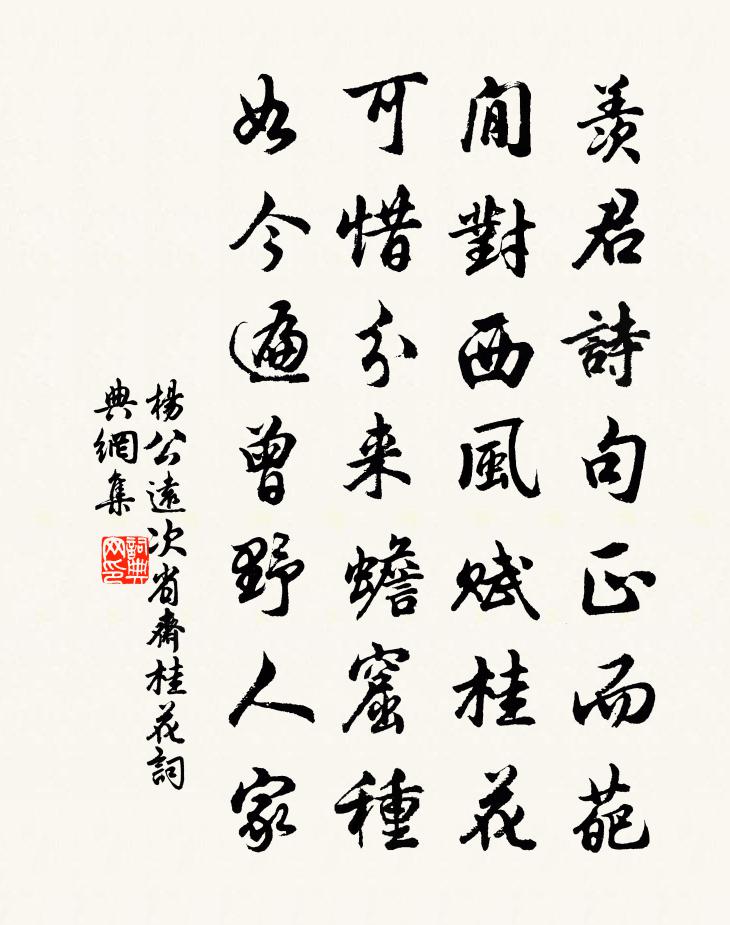 羨君詩句正而葩
閒對西風賦桂花
可惜分来蟾窟種
如今遍曾野人家
楊公遠次省齋桂花詞
典網集
詞典網印